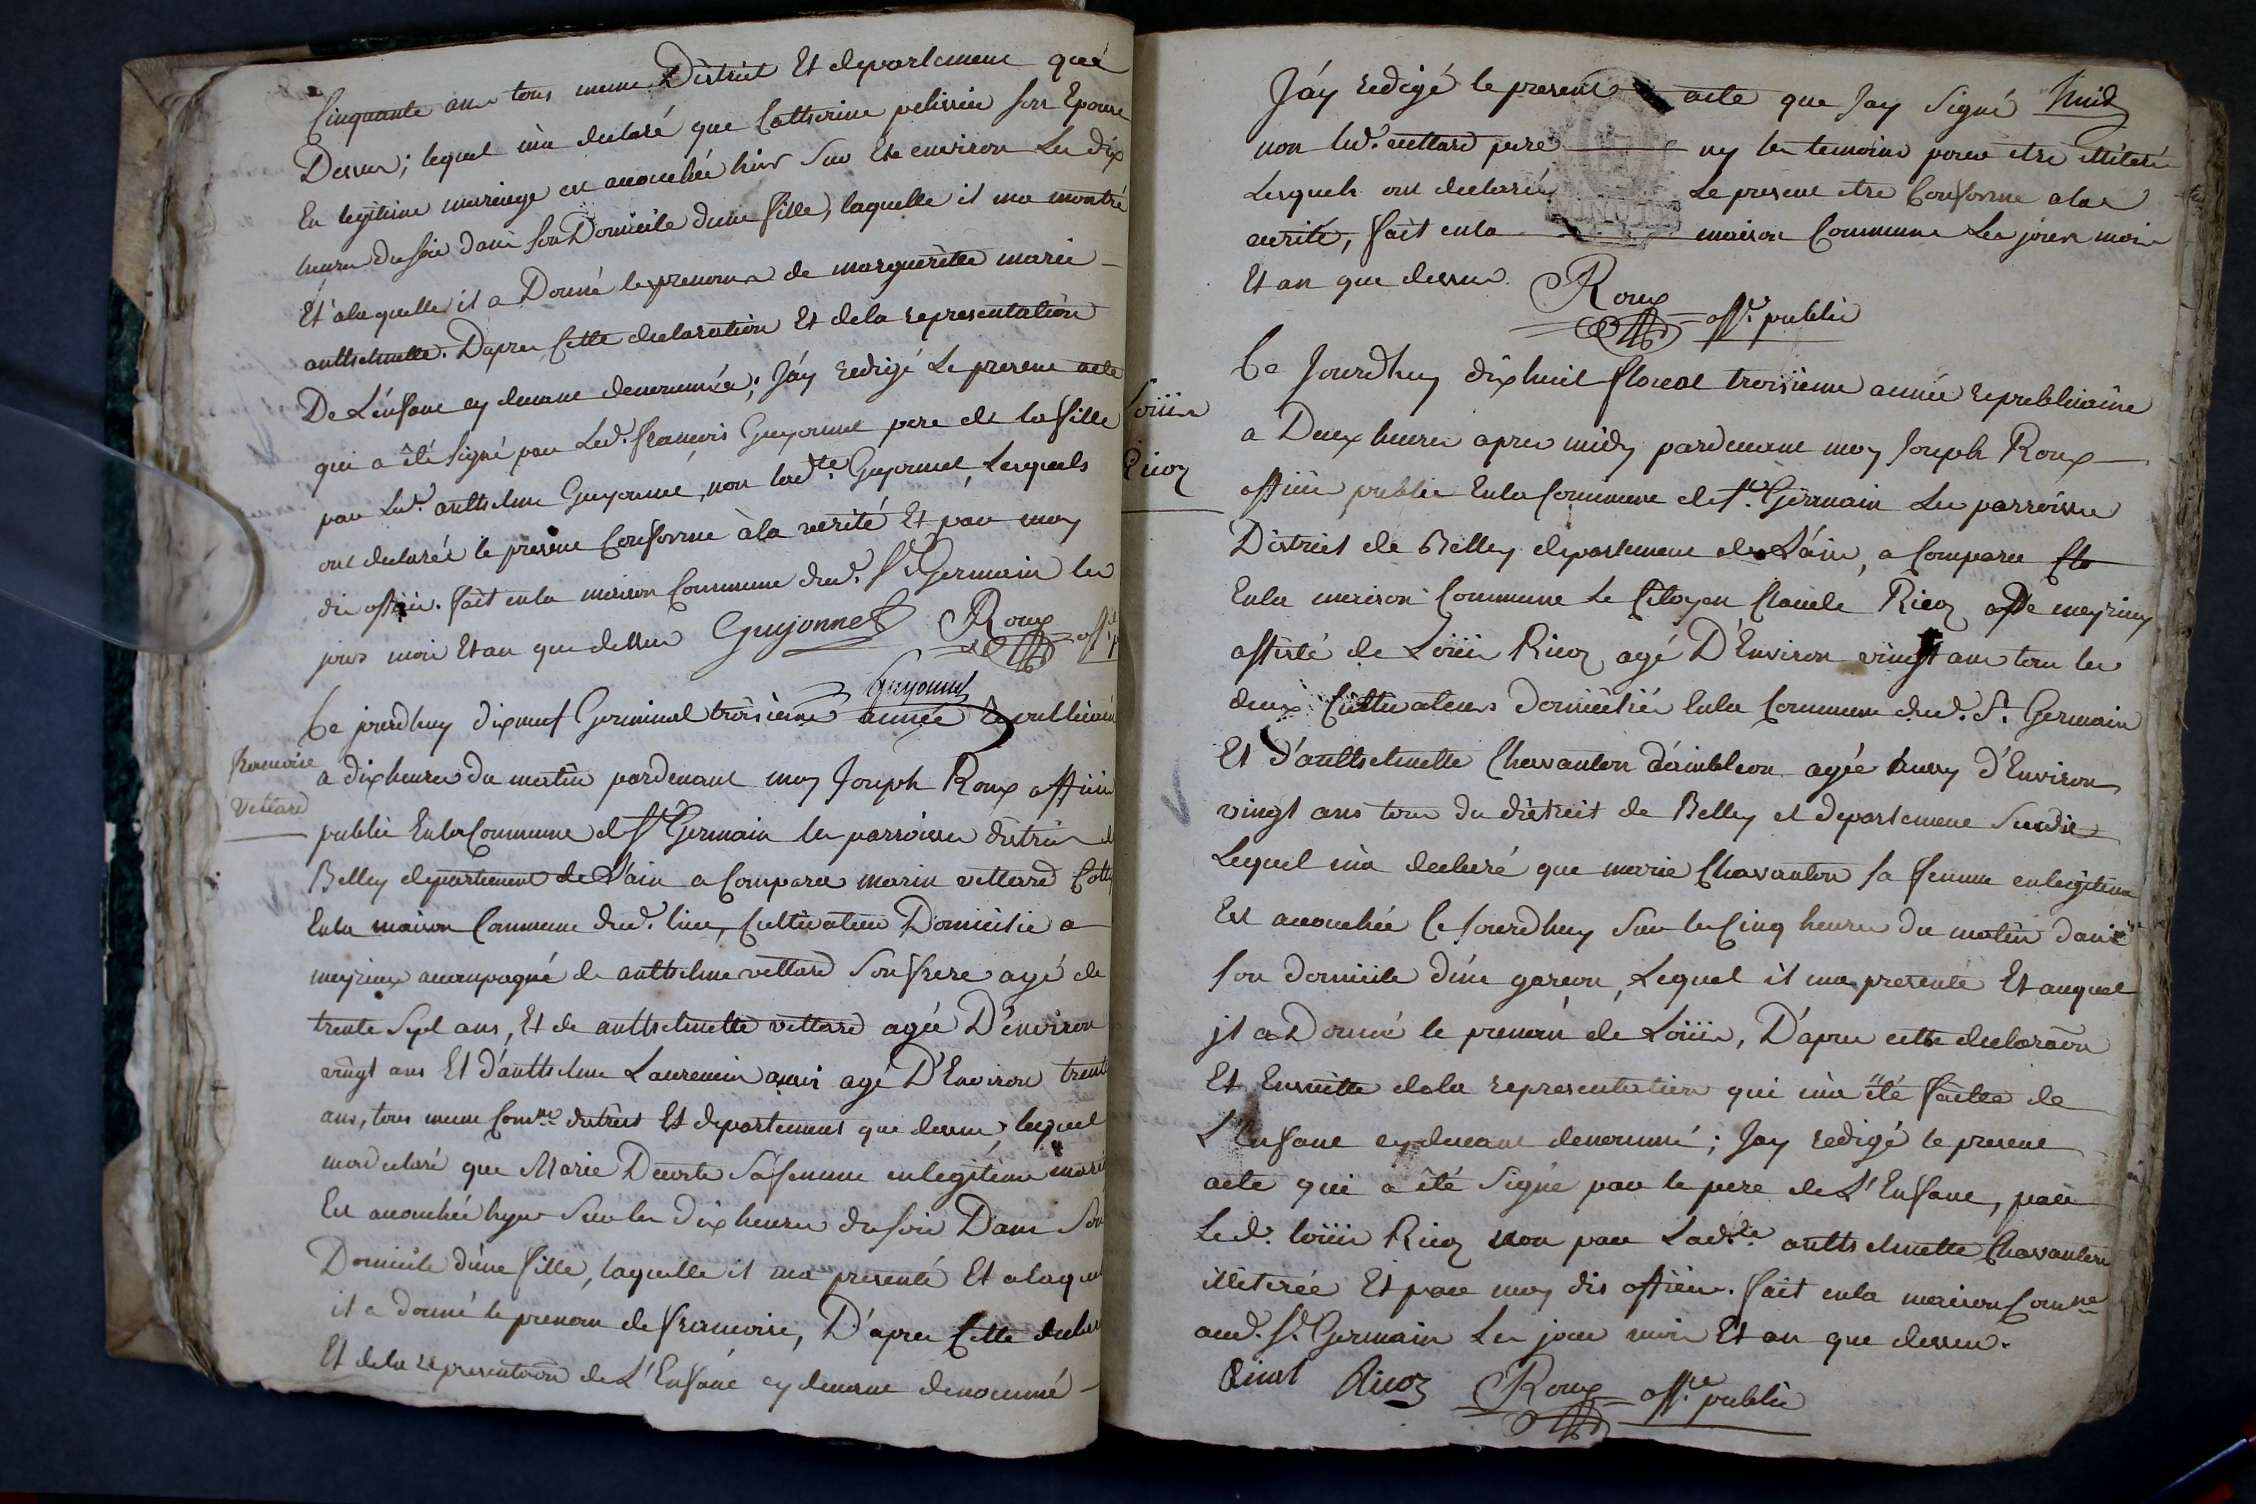 Cinquante ans tous meme District Et departement que
Dessus; lequel m'a declaré que Catherine pelissier son Epouse
En legitime mariage est accouchée hier sur Les environ Les dix
heures du soir dans son Domicile d'une fille, laquelle il ma montré
Et alaquelle il a Donné les prenoms de margueritte marie
anthelmette. D'apres Cette declaration Et dela representation
De L'enfant cy devant denommée; J'ay redigé Le present acte
qui a été signé par Led. francois Guyonnet pere de la fille
par Led. anthelme Guyonnet, non lad.te Guyonnet, Lesquels
ont declarés le present Conforme à la verité Et par moy
dis officier. fait enla maison Commune dud. St Germain les
jours mois Et an que dessus Guyonnet Roux off.er p
Guyonnet
Ce jourdhuy dixneuf Germinal troisieme année Republicain
francoise
Vettard
a dix heures du matin pardevant moy Joseph Roux officier
public Enla Commune de St Germain les parroisses district de
Belley departement de L'ain a Comparu marin vettard
Enla maison Commune dud. lieu, Cultivateur Domicilié a
meyrieux accompagné de anthelme vettard son frere agé de
trente Sept ans, Et de anthelmette vettard agée D'environ
vingt ans Et d'anthelme Laurencin aussi agé D'Environ trente
ans, tous meme Com.ne district Et departement que dessus; lequel
ma declaré que Marie Sa femme en legitime mari
Est accouchée hyer Sur les Dix heures du soir Dans Son
Domicile d'une fille, laquelle il ma presenté Et alaquel
il a donné le prenom de francoise, D'apres Cette declar
Et dela representaon de L'Enfant cy devant denommé
J'ay redigé le present acte que Jay Signé
non led. vettard pere ny les temoins pour etre illiteré
Lesquels ont declarés Le present etre Conforme ala
verité, fait enla maison Commune Les jours mois
Et an que dessus. Roux off.er public
MINUTE
Loüis
Ricoz
Ce Jourdhuy dixhuit floreal troisieme année republicaine
a Deux heures apres midy pardevant moy Joseph Roux
officier public Enla Commune de St. Germain Les parroisses
District de Belley departement de L'ain, a Comparu
Enla maison Commune Le Citoyen Claude Ricoz de meyrieu
assisté de Loüis Ricoz agé D'Environ vingt ans tous les
deux Cultivateurs domiciliés Enla Commune dud. St. Germain
Et d'anthelmette Chavanton d'ambleon agée aussy d'Environ
vingt ans tous du district de Belley et departement Susdit
Lequel m'a declaré que marie Chavanton sa femme enlegitime
Est accouchée Ce Jourdhuy Sur les Cinq heures du matin dans
son domicile d'un garcon, Lequel il ma presenté Et auquel
jl a Donné le prenom de Loüis, D'apres cette declaraon
Et Ensuitte dela representation qui m'a été faitte de
L'Enfant cydevant denommé; Jay redigé le present
acte qui a été Signé par le pere de L'Enfant, par
Led. loüis Ricoz non par Lad.te anthelmette Chavanton
illiterée Et par moy dis officier. fait enla maison Com.ne
aud. St. Germain Les jour mois Et an que dessus.
Ricoz Roux off.er public